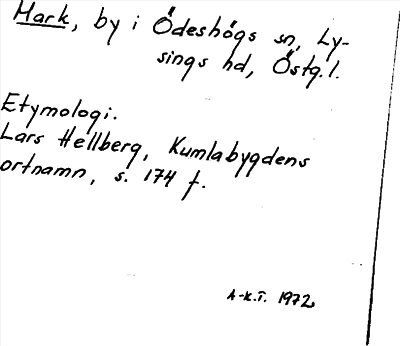 Hark, by i Ödeshögs sn, Ly-
sings hd, Östg.l.
Etymologi.
Lars Hellberg, Kumlabygdens
ortnamn, s. 174 f.
A-K.T. 1972